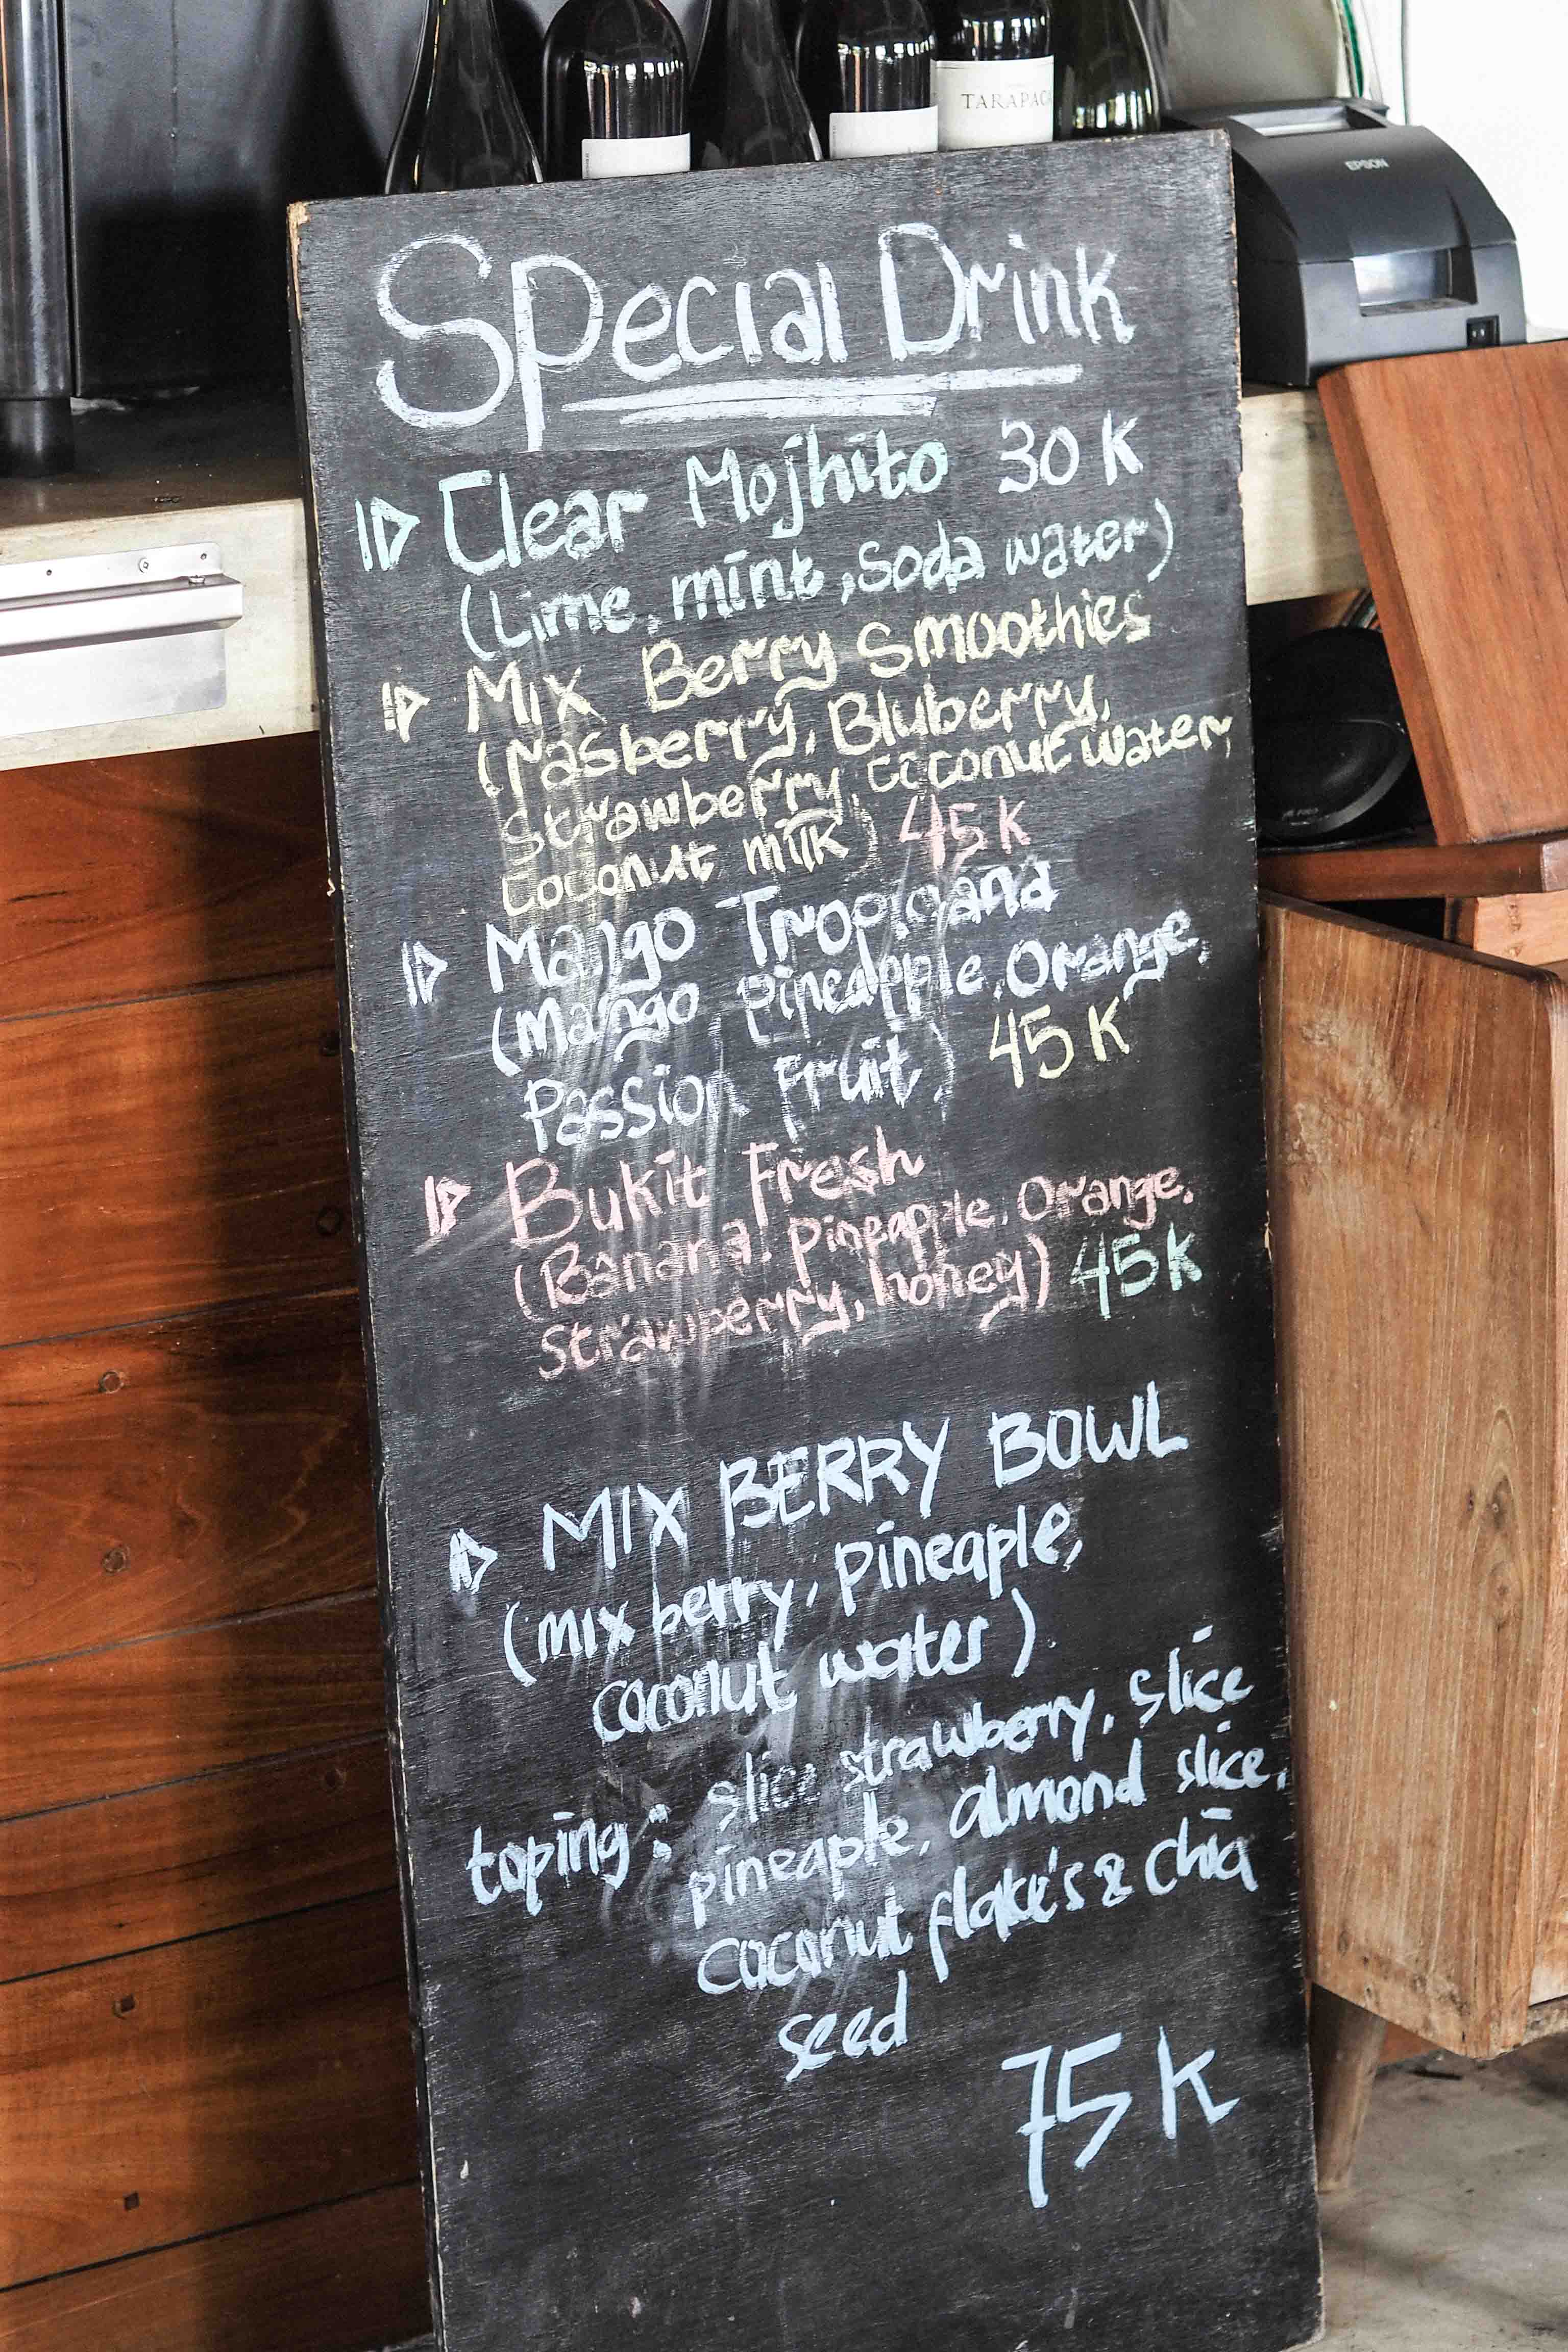 TARAPAC
EPSON
Special Drink
Clear Mojhito 30 K
(Lime, mint, soda water)
Mix Berry Smoothies
(rasberry, Bluberry,
strawberry, coconut water,
coconut milk) 45 K
Mango Tropicana
(Mango pineapple, Orange,
Passion Fruit) 45 K
Bukit Fresh
(Banana, pineapple, Orange,
strawberry, honey) 45 K
MIX BERRY BOWL
(mix berry, pineaple,
coconut water)
toping : slice strawberry, slice
pineaple, almond slice,
coconut flake's & chia
seed
75 K